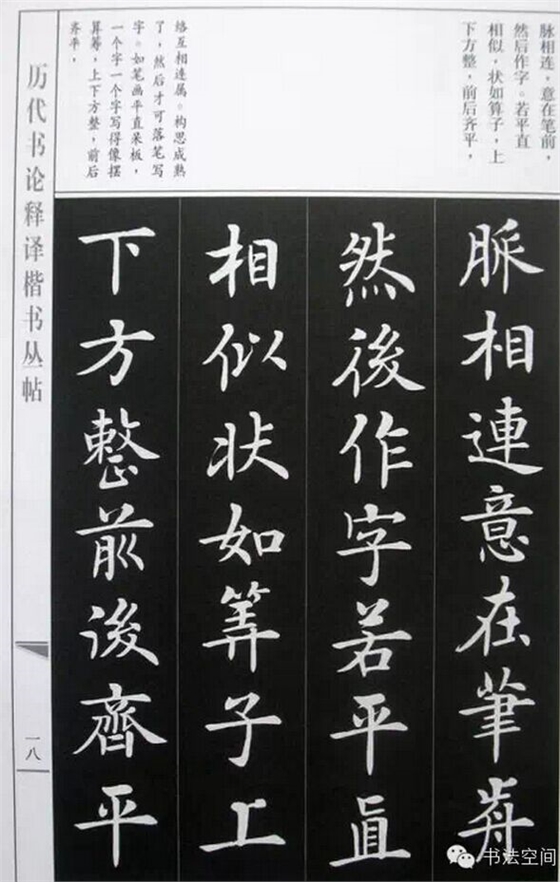 脉相连，意在笔前，
然后作字。若平直
相似，状如算子，上
下方整，前后齐平，
络互相连属。构思成熟
了，然后才可落笔写
字。如笔画平直呆板，
一个字一个字写得像摆
算筹，上下方整，前后
齐平，
脈相連意在筆歬
然後作字若平直
相似状如筭子上
下方整前後齊平
历代书论释译楷书丛帖
一八
书法空间